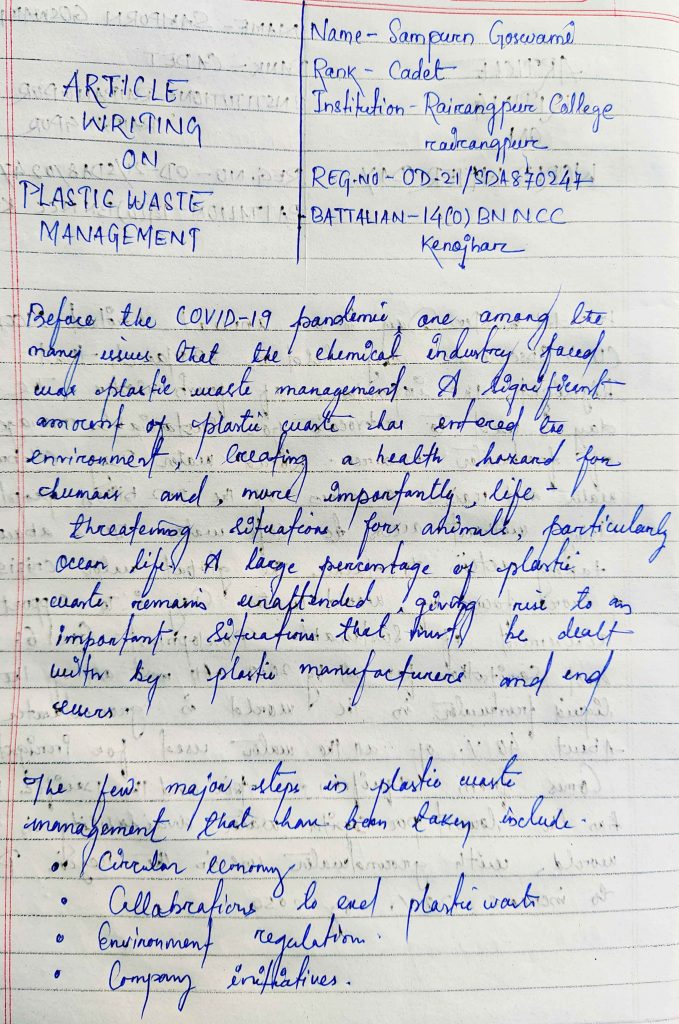 ARTICLE
WRITING
ON
PLASTIC WASTE
MANAGEMENT
Name - Sampurn Goswami
Rank - Cadet
Institution - Rairangpur College
rairangpur
REG.NO - OD-21/SDA870247
BATTALIAN - 14(O) BN NCC
Kenojhar
Before the COVID-19 pandemic, one among the
many issues that the chemical industry faced
was plastic waste management. A significent
amount of plastic waste has entered the
environment, creating a health hazard for
humans and, more importantly, life -
threatening situations for animals, particularly
ocean life. A large percentage of plastic
waste remains unattended, giving rise to an
important situations that must be dealt
with by plastic manufacturers and end
users.
The few major steps in plastic waste
management that have been taken include.
• Circular economy
• Collabrations to end plastic waste
• Environment regulation.
• Company initiatives.